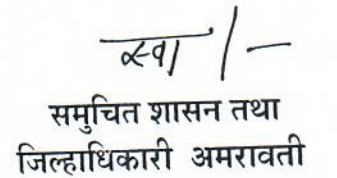 स्वा/-
समुचित शासन तथा
जिल्हाधिकारी अमरावती